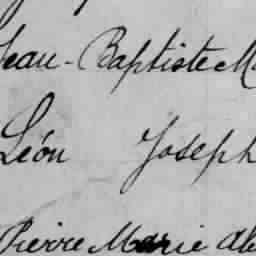 Jean-Baptiste M
Léon Joseph
Pierre Marie Al